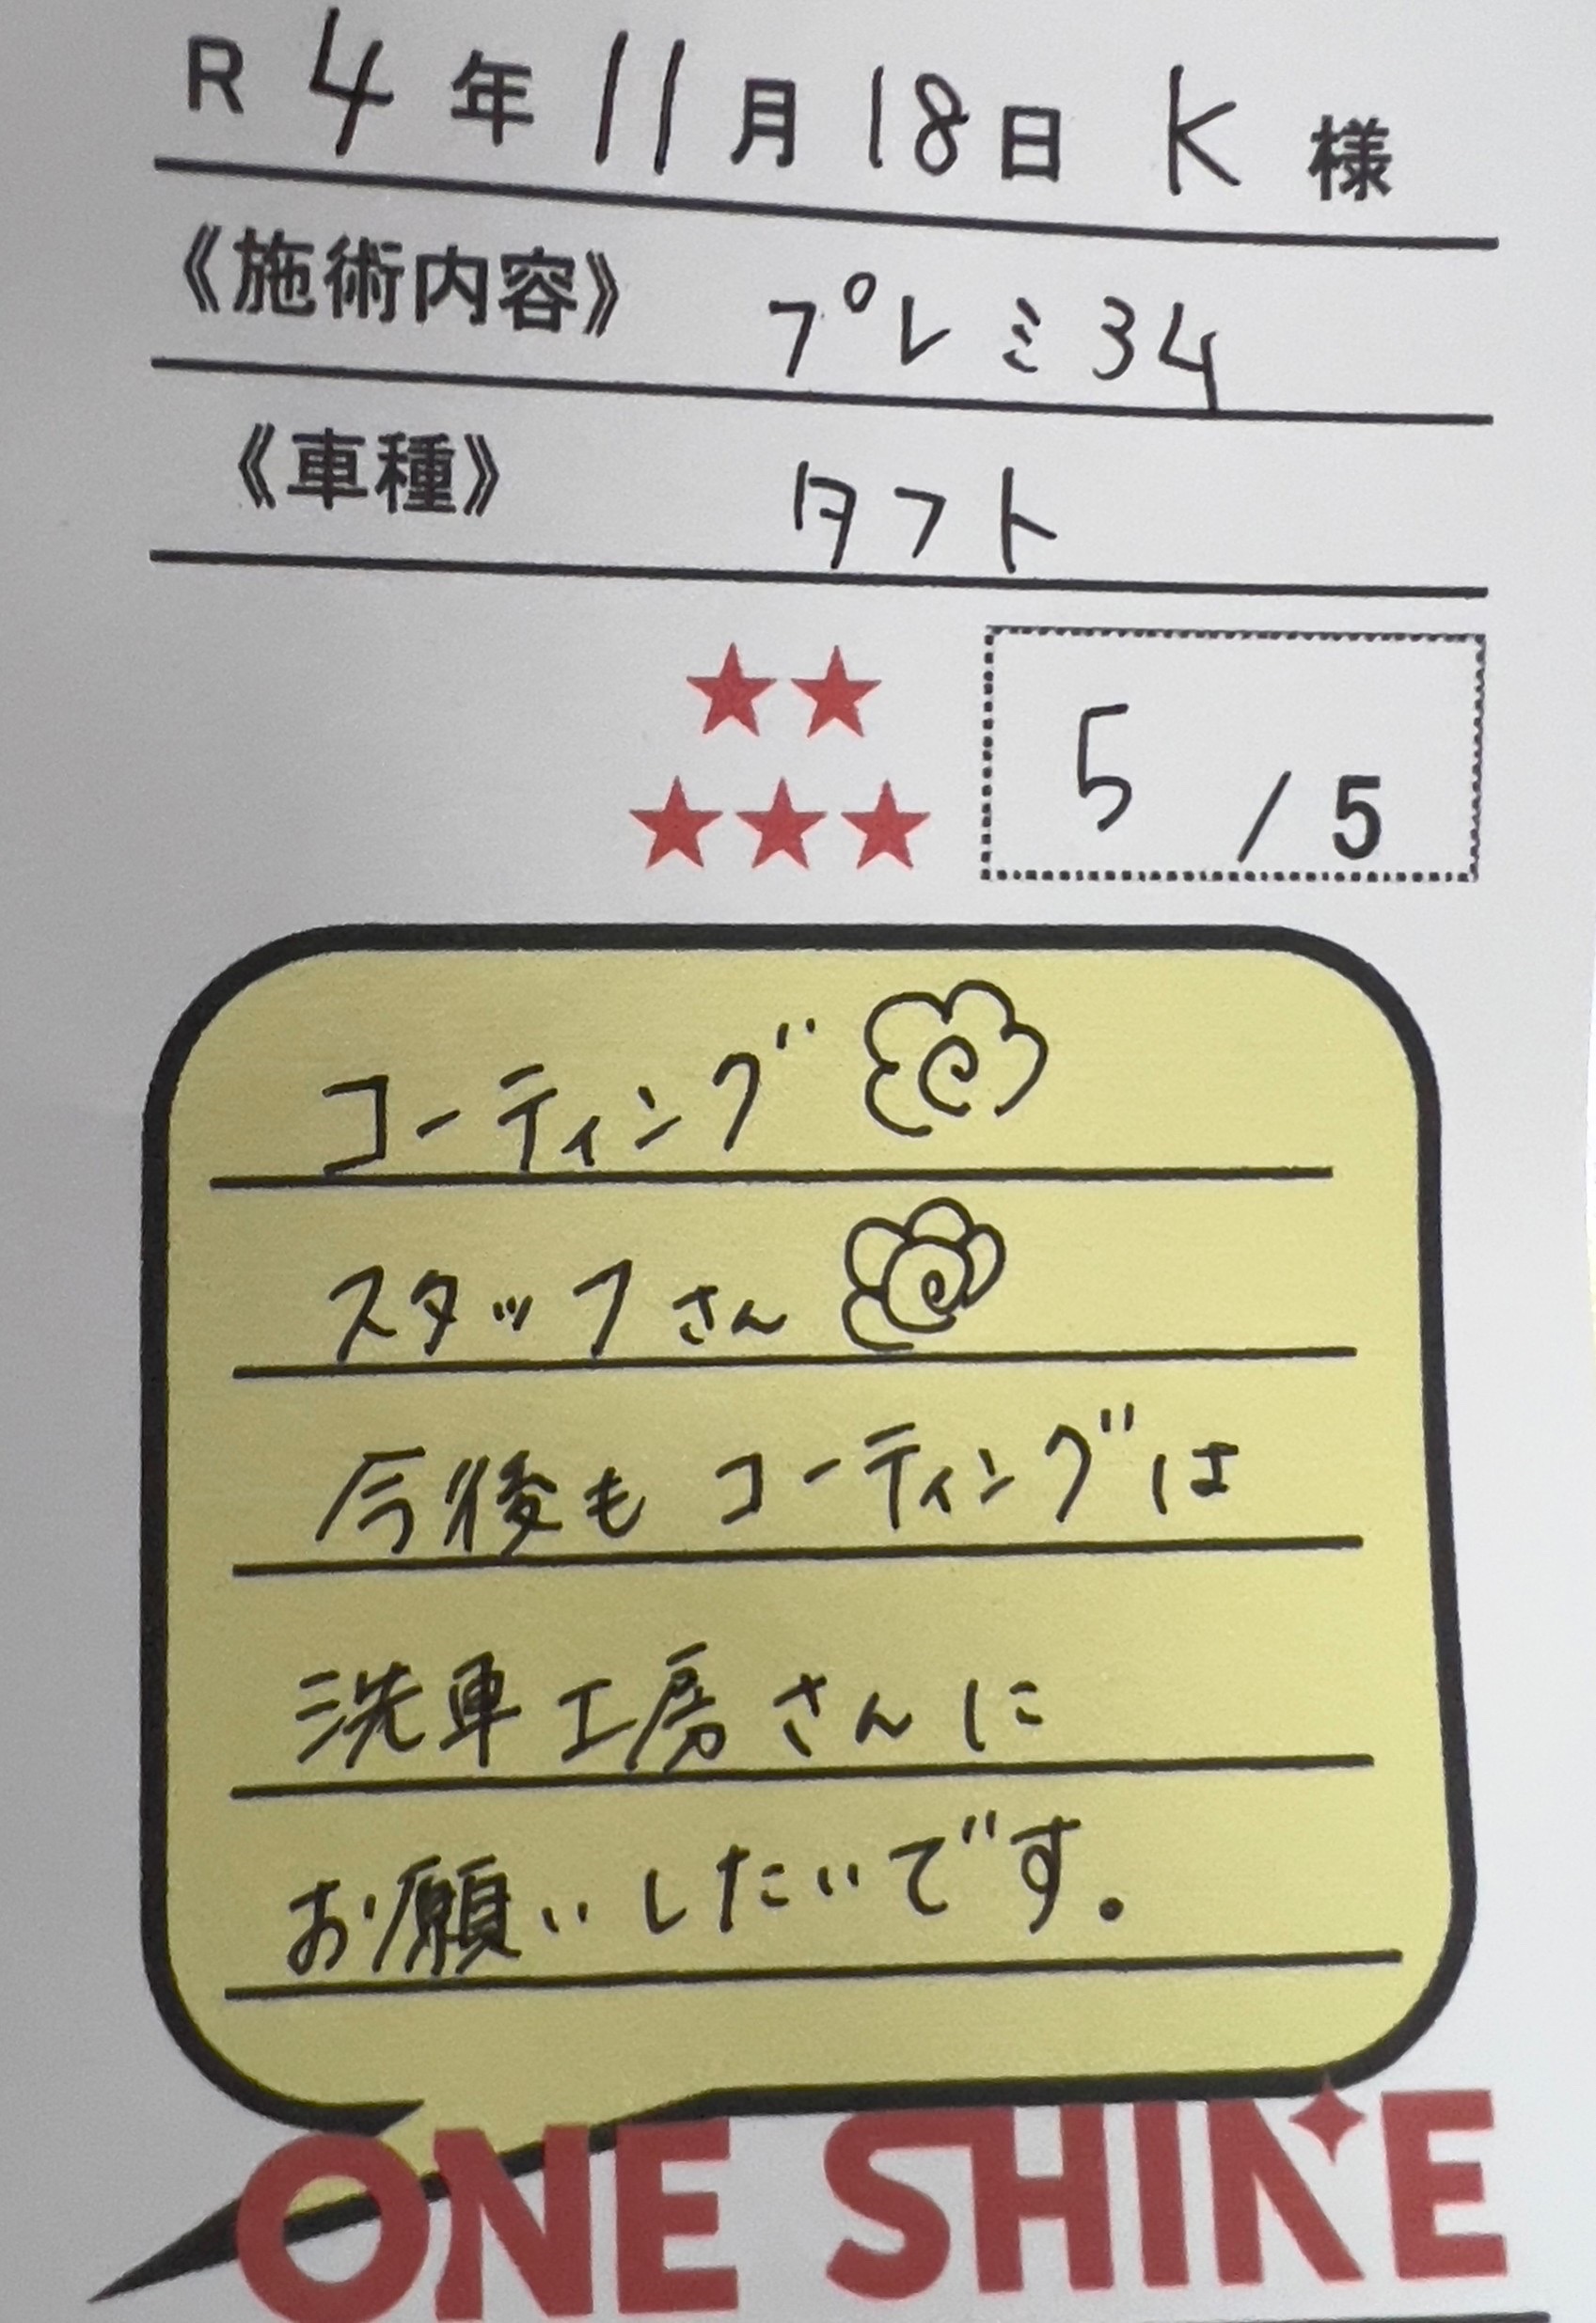 R 4 年 11 月 18 日 K 様
《施術内容》 プレミ34
《車種》 タフト
★★
★★★
5 / 5
コーティング
スタッフさん
今後もコーティングは
洗車工房さんに
お願いしたいです。
ONE SHINE